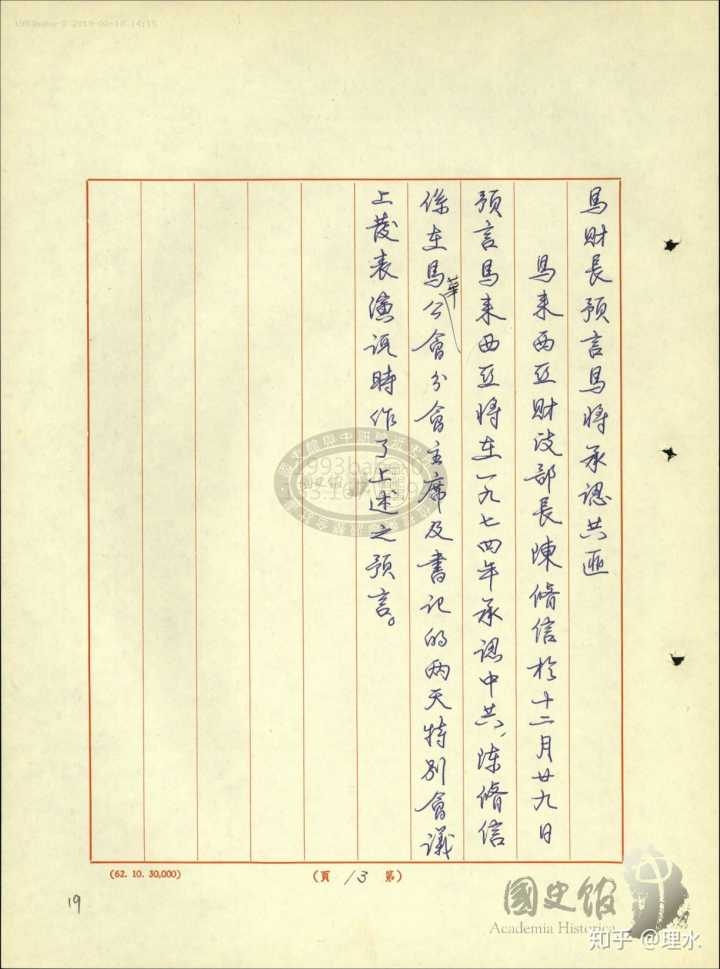 馬財長預言馬將承認共匪
馬来西亞財政部長陳脩信於十二月廿九日
預言馬来西亞將在一九七四年承認中共,陈脩信
係在馬華公會分會主席及書记的两天特别會議
上發表演说時作了上述之预言。
(62. 10. 30,000)
(頁 13 第)
19
國史館
Academia Historica
知乎 @理水